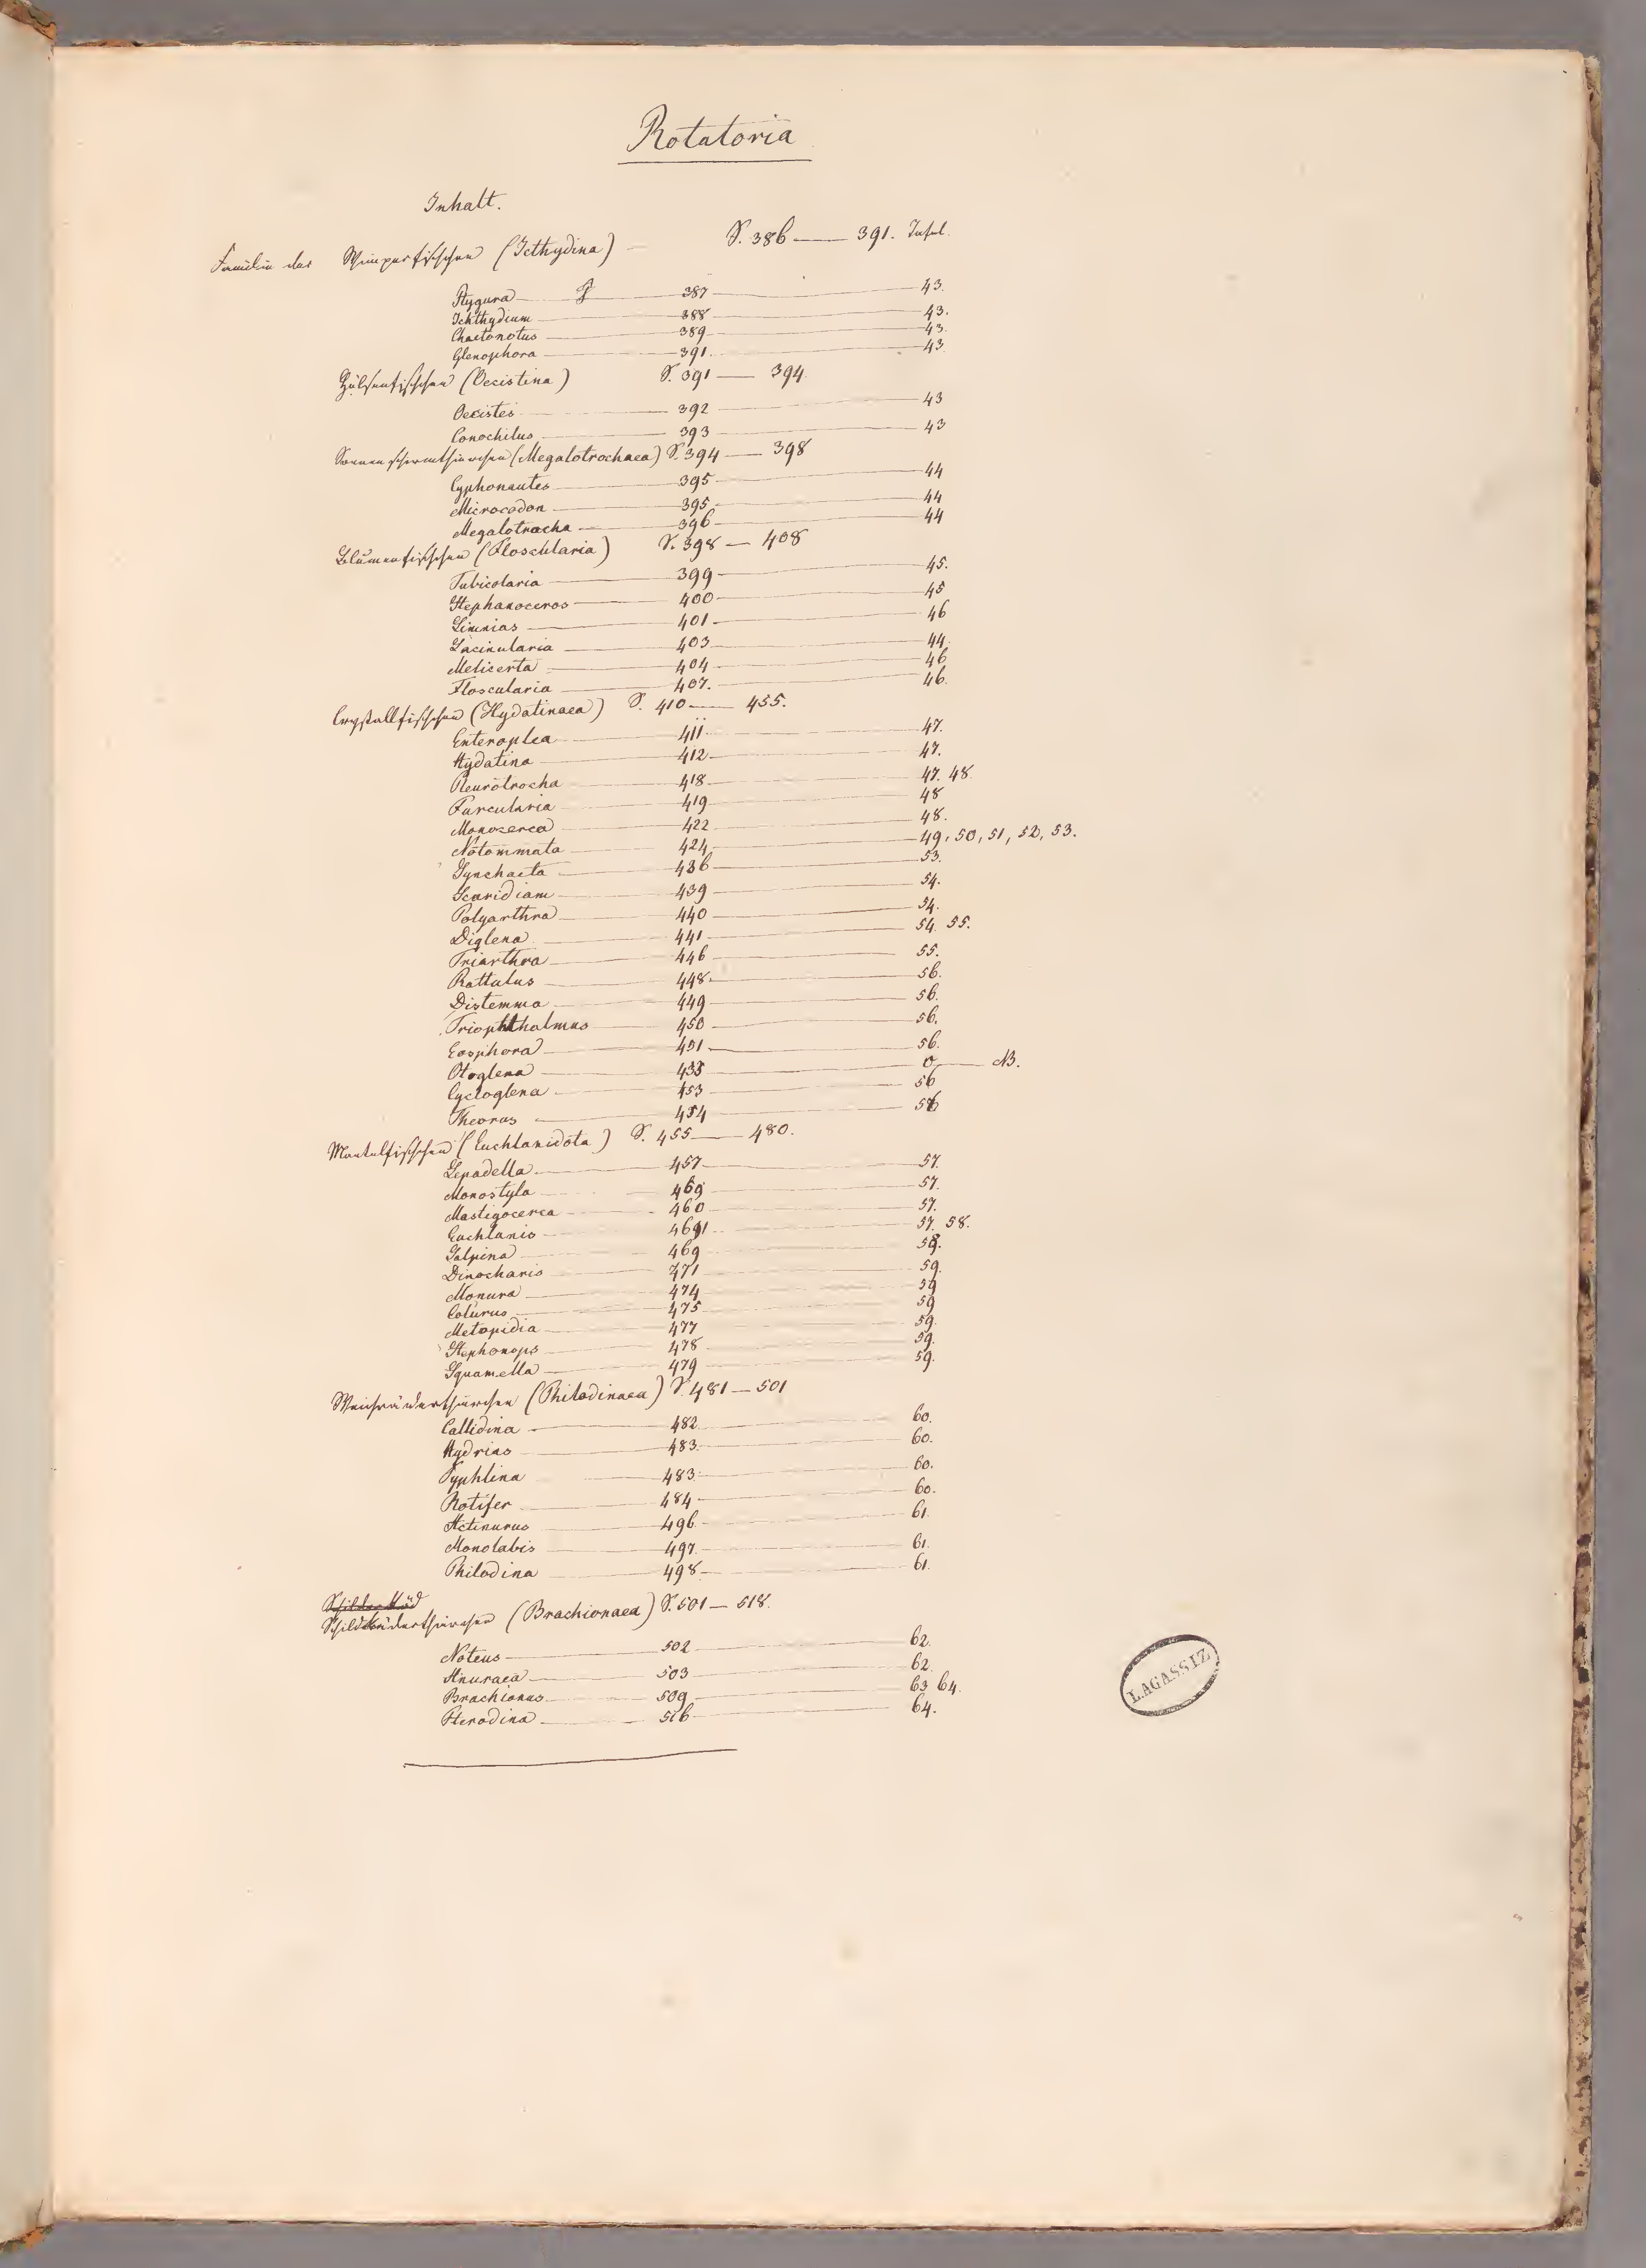 Rotatoria
Inhalt.
Familie der Wimperfischchen (Icthydina) — S. 386 — 391. Tafel.
Ptygura — 387 — 43.
Ichthydium — 388 — 43.
Chaetonotus — 389 — 43.
Glenophora — 391. — 43
Hülsenfischchen (Oecistina) S. 391 — 394.
Oecistes — 392 — 43
Conochilus — 393 — 43
Sonnenschirmthierchen (Megalotrochaea) S. 394 — 398
Cyphonautes — 395 — 44
Microcodon — 395 — 44
Megalotrocha — 396 — 44
Blumenfischchen (Floscularia) S. 398 — 408
Tubicolaria — 399 — 45.
Stephanoceros — 400 — 45
Limnias — 401 — 46
Lacinularia — 403 — 44.
Melicerta — 404 — 46
Floscularia — 407. — 46.
Crystallfischchen (Hydatinaea) S. 410 — 455.
Enteroplea — 411 — 47.
Hydatina — 412 — 47.
Pleurotrocha — 418 — 47. 48.
Furcularia — 419 — 48
Monocerca — 422 — 48.
Notommata — 424 — 49, 50, 51, 52, 53.
Synchaeta — 436 — 53.
Scaridium — 439 — 54.
Polyarthra — 440 — 54.
Diglena — 441 — 54. 55.
Triarthra — 446 — 55.
Rattulus — 448 — 56.
Distemma — 449 — 56.
Triophthalmus — 450 — 56.
Eosphora — 451 — 56.
Otoglena — — 0 — NB.
Cycloglena — 453 — 56
Theorus — 454 — 56
Mantelfischchen (Euchlanidota) S. 455 — 480.
Lepadella — 457 — 57.
Monostyla — — 57.
Mastigocerca — 460 — 57.
Euchlanis — — 57. 58.
Salpina — 469 — 58.
Dinocharis — 471 — 59.
Monura — 474 — 59
Colurus — 475 — 59
Metopidia — 477 — 59.
Stephonops — 478 — 59.
Squamella — 479 — 59.
Weichräderthierchen (Philodinaea) S. 481 — 501
Callidina — 482 — 60.
Hydrias — 483 — 60.
Typhlina — 483 — 60.
Rotifer — 484 — 60.
Actinurus — 496 — 61.
Monolabis — 497 — 61.
Philodina — 498 — 61.
Schilderthäd
Schildräderthierchen (Brachionaea) S. 501 — 518.
Noteus — 502 — 62.
Anuraea — 503 — 62.
Brachionus — 509 — 63 64.
Pterodina — 516 — 64.
L AGASSIZ